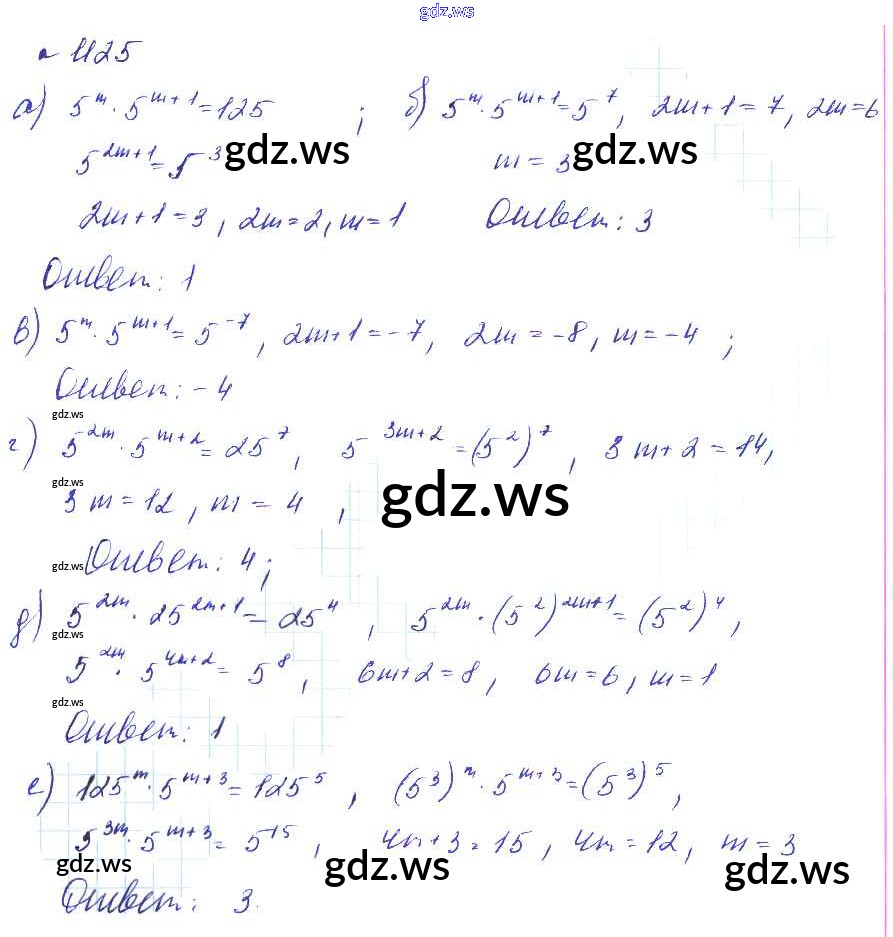 gdz.ws
№ 1125
а) 5^m · 5^{m+1} = 125 ; б) 5^m · 5^{m+1} = 5^7, 2m+1 = 7, 2m = 6
5^{2m+1} = 5^3 gdz.ws m = 3 gdz.ws
2m+1 = 3, 2m = 2, m = 1 Ответ: 3
Ответ: 1
в) 5^m · 5^{m+1} = 5^{-7}, 2m+1 = -7, 2m = -8, m = -4 ;
Ответ: -4
gdz.ws
г) 5^{2m} · 5^{m+2} = 25^7, 5^{3m+2} = (5^2)^7, 3m+2 = 14,
gdz.ws
3m = 12, m = 4 , gdz.ws
gdz.ws Ответ: 4;
д) 5^{2m} · 25^{2m+1} = 25^4 , 5^{2m} · (5^2)^{2m+1} = (5^2)^4,
gdz.ws
5^{2m} · 5^{4m+2} = 5^8, 6m+2 = 8, 6m = 6, m = 1
gdz.ws
Ответ: 1
е) 125^m · 5^{m+3} = 125^5 , (5^3)^m · 5^{m+3} = (5^3)^5,
5^{3m} · 5^{m+3} = 5^{15}, 4m+3 = 15, 4m = 12, m = 3
gdz.ws gdz.ws gdz.ws
Ответ: 3.